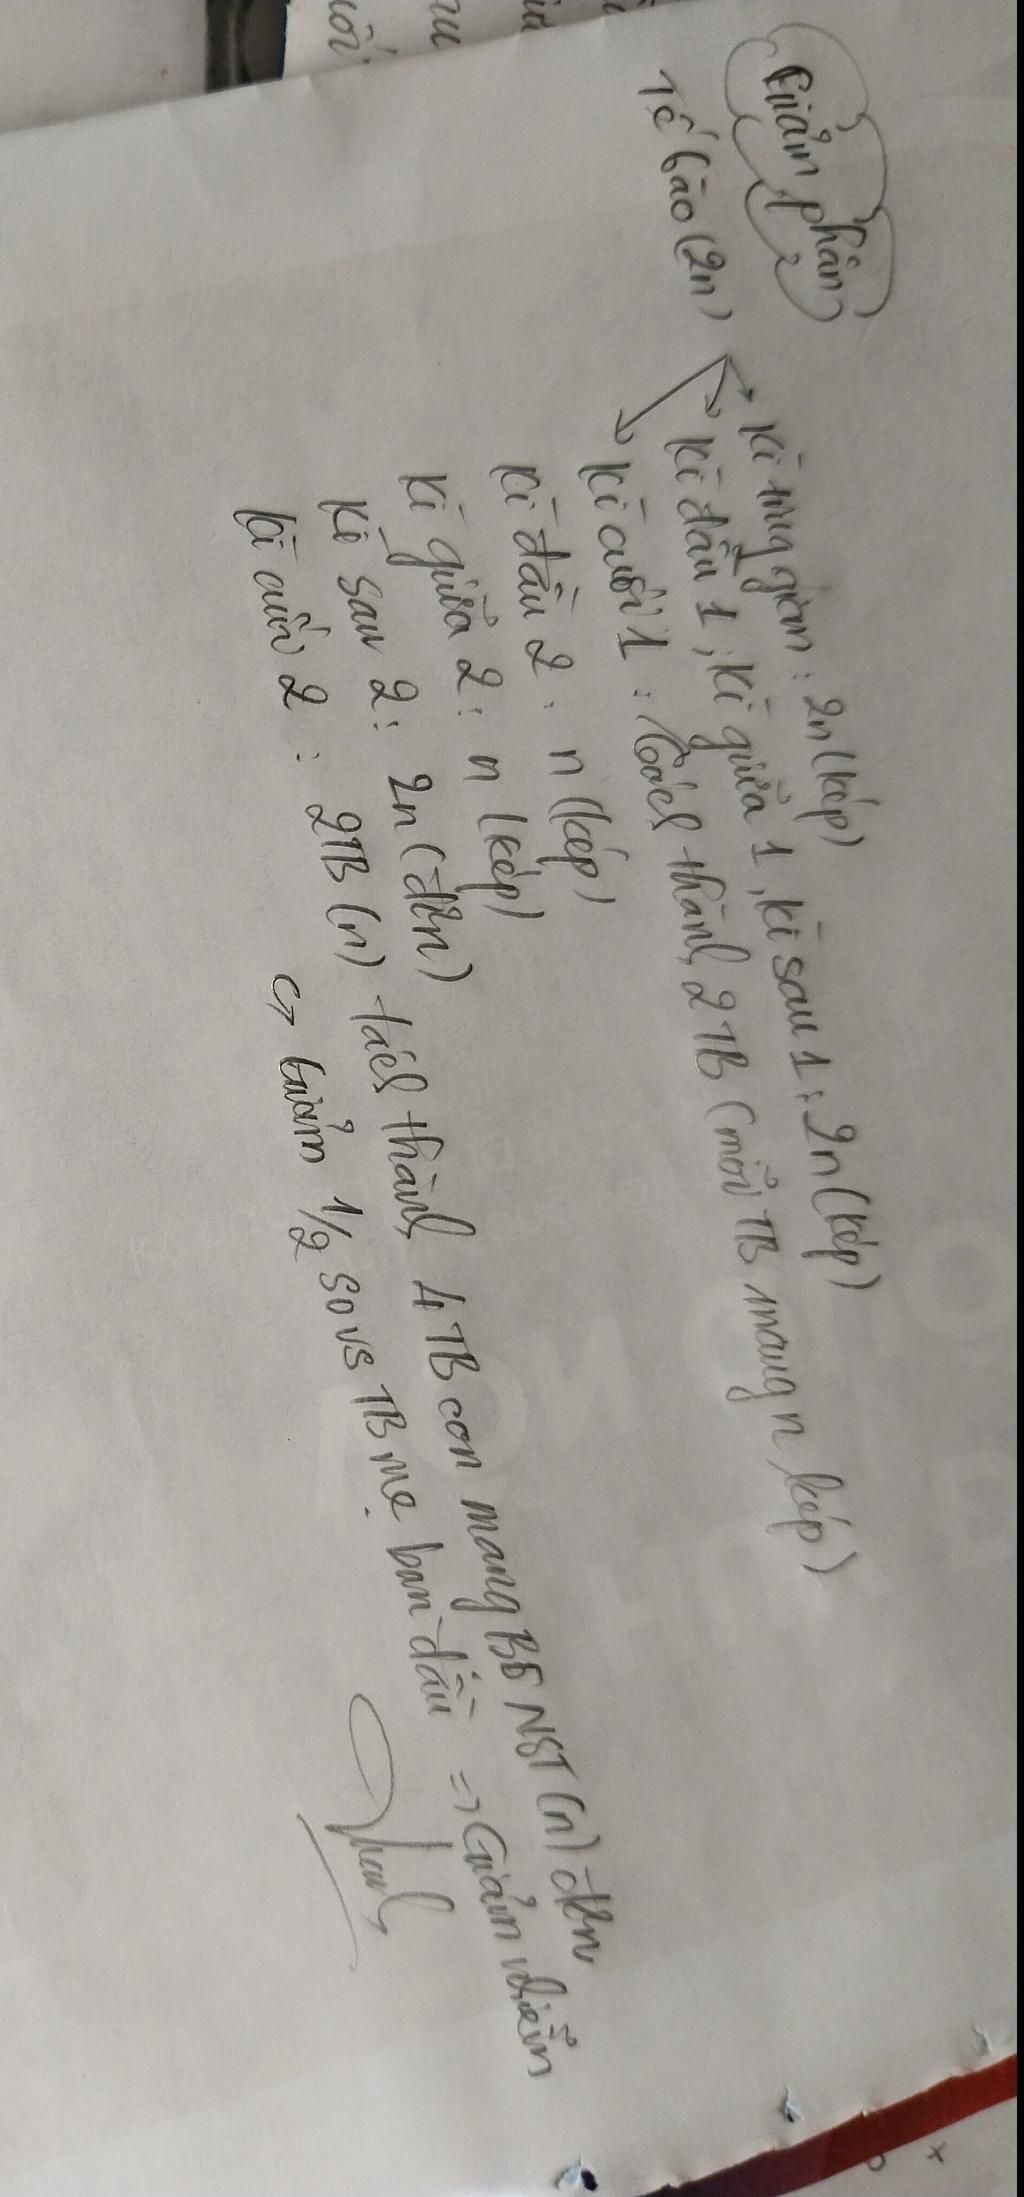 Giảm phân
Tế bào (2n)
Kì trung gian: 2n (kép)
Kì đầu 1, kì giữa 1, kì sau 1: 2n (kép)
Kì cuối 1: Tách thành 2 TB (mỗi TB mang n kép)
Kì đầu 2: n (kép)
Kì giữa 2: n (kép)
Kì sau 2: 2n (đơn)
Kì cuối 2: 2TB (n) tách thành 4 TB con mang Bộ NST (n) đơn
↳ Giảm 1/2 so vs TB mẹ ban đầu => Giảm nhiễm